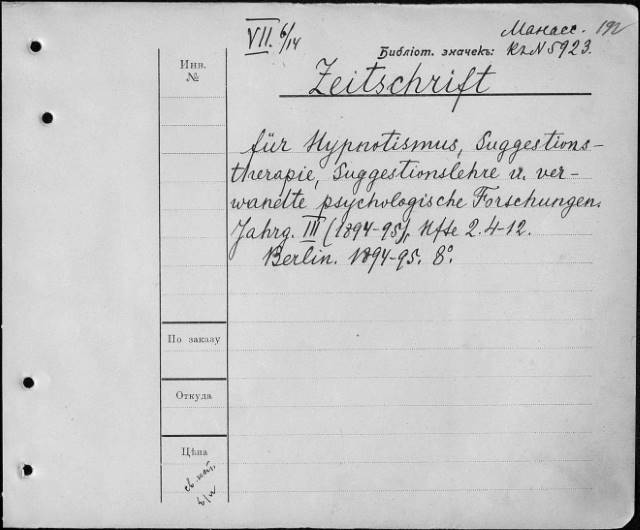 VII. 6/14
Манасс. 192
Библіот. значекъ: Кл N 5923.
Инв. №
Zeitschrift
für Hypnotismus, Suggestions-
therapie, Suggestionslehre u. ver-
wandte psychologische Forschungen.
Jahrg. III (1894-95), Hfte 2. 4-12.
Berlin. 1894-95. 8°.
По заказу
Откуда
Цѣна